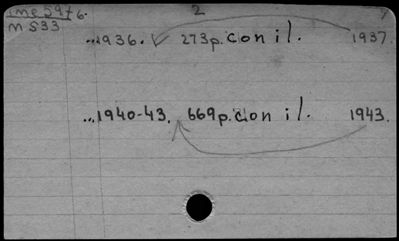 Ime59t6. 2
m S33
...1936. 273p. con il. 1937.
...1940-43. 669p. con il. 1943.